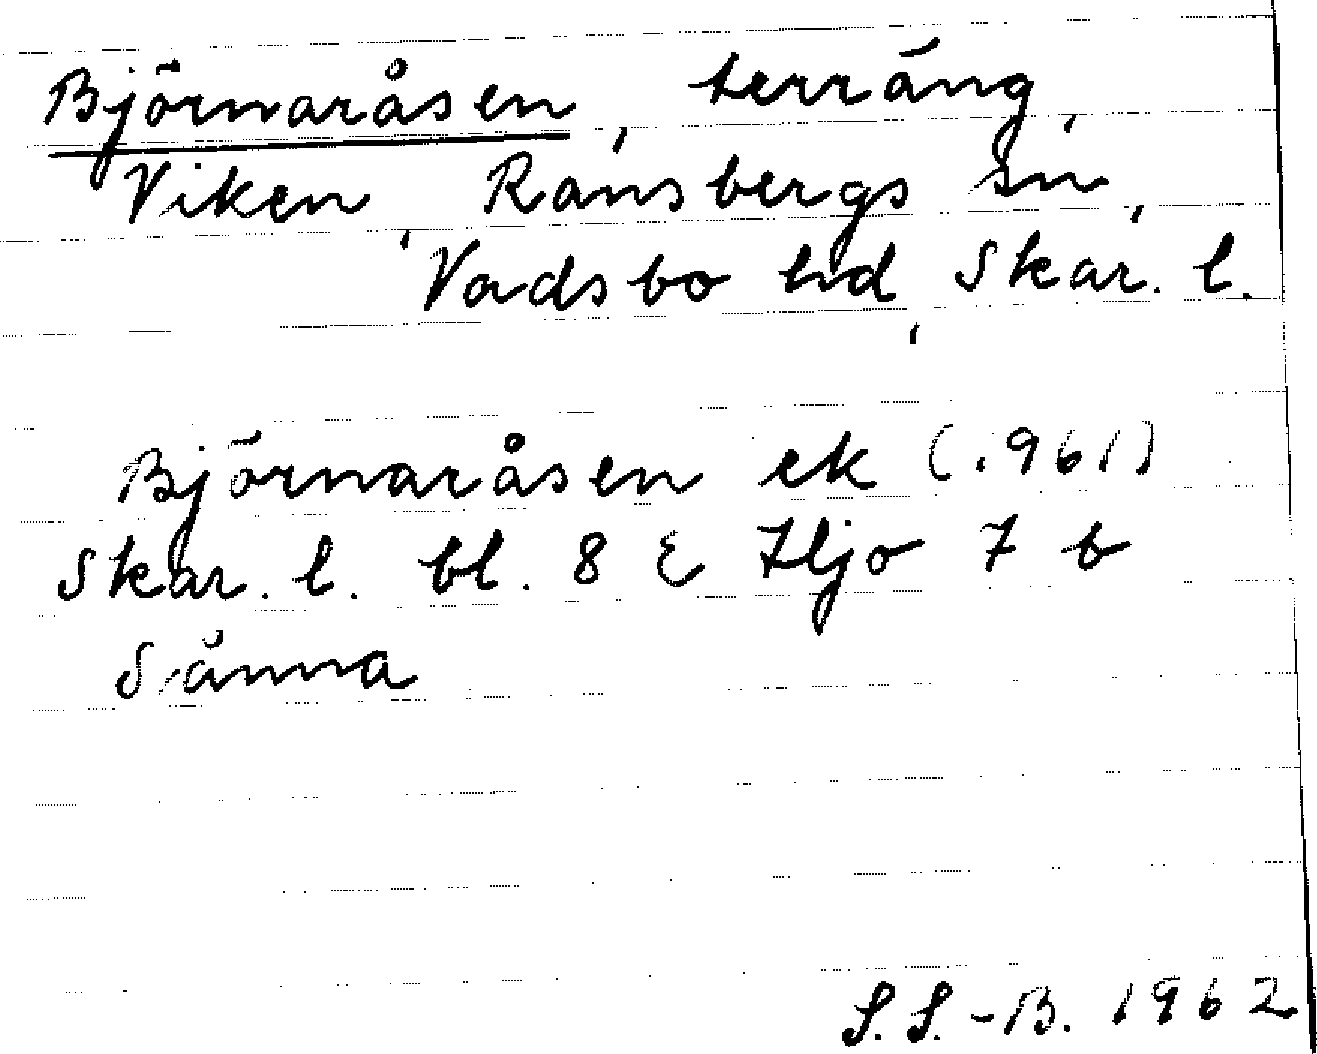 Björnaråsen, terräng,
Viken, Ransbergs sn,
Vadsbo hd, Skar. l.
Björnaråsen ek (1961)
Skar. l. bl. 8 E Hjo 7 b
Stänna
S. S.-B. 1962